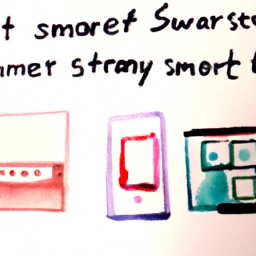 t smoref Swarst
mer strany smort